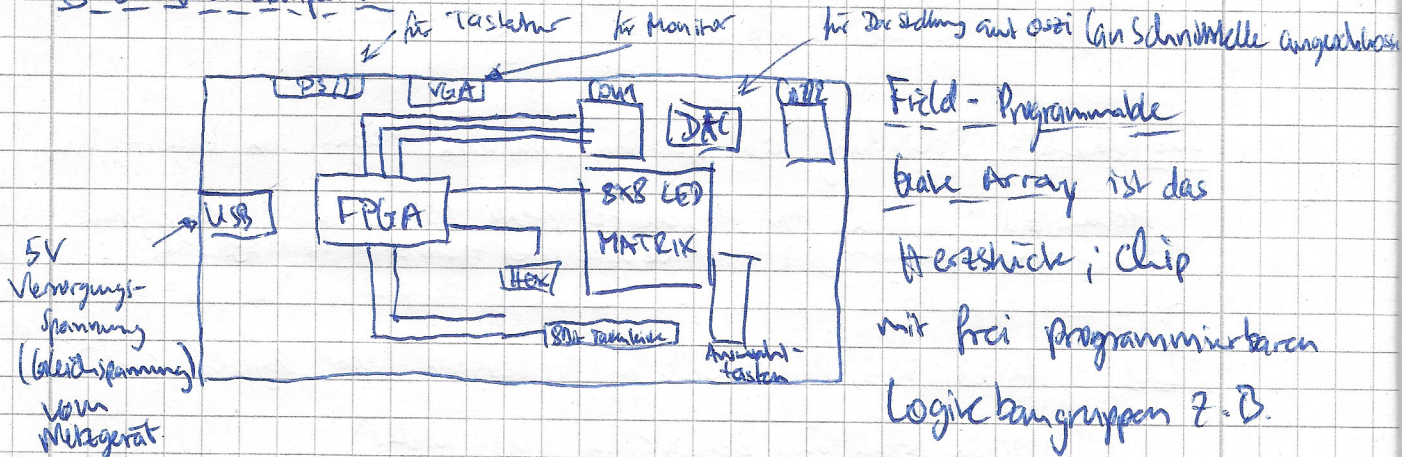 für Tastatur
für Monitor
für Darstellung auf Oszi (an Schnittstelle angeschlossen
PS/2
VGA
COM1
DAC
USB
FPGA
8x8 LED
MATRIX
HEX
8Bit
Auswahl-
tasten
5V
Versorgungs-
spannung
(Gleichspannung)
vom
Netzgerät
Field-Programmable
Gate Array ist das
Herzstück; Chip
mit frei programmierbaren
Logikbaugruppen z.B.